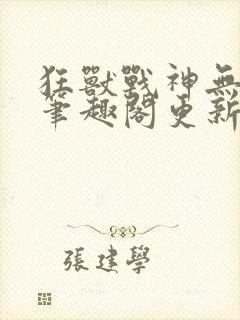 狂獸戰神無
筆趣閣更新
張建學